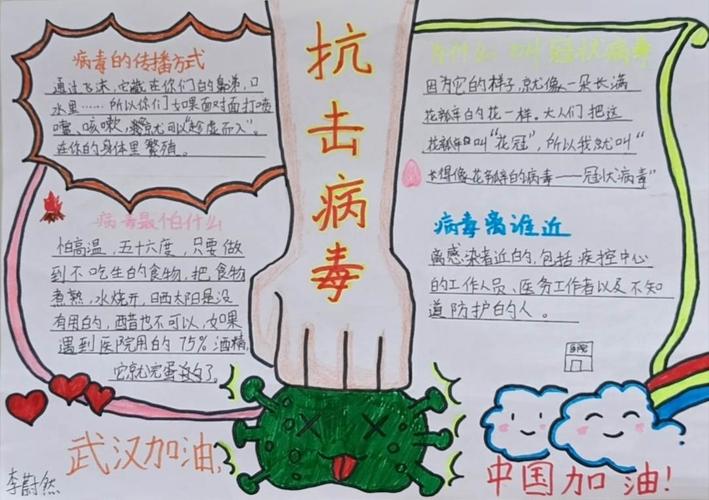 抗击病毒
病毒的传播方式
通过飞沫,它藏在你们的鼻涕,口
水里……所以你们如果面对面打喷
嚏、咳嗽,我就可以“趁虚而入”。
在你的身体里繁殖。
病毒最怕什么
怕高温,五十六度,只要做
到不吃生的食物,把食物
煮熟,水烧开,日晒太阳是没
有用的,醋也不可以,如果
遇到医院用的75%酒精,
它就完蛋了。
为什么叫冠状病毒
因为它的样子,就像一朵长满
花瓣的花一样。大人们把这
花瓣叫“花冠”,所以我就叫“
长得像花瓣的病毒——冠状病毒”
病毒离谁近
离感染者近的,包括疾控中心
的工作人员、医务工作者以及不知
道防护的人。
武汉加油!
中国加油!
李蔚然